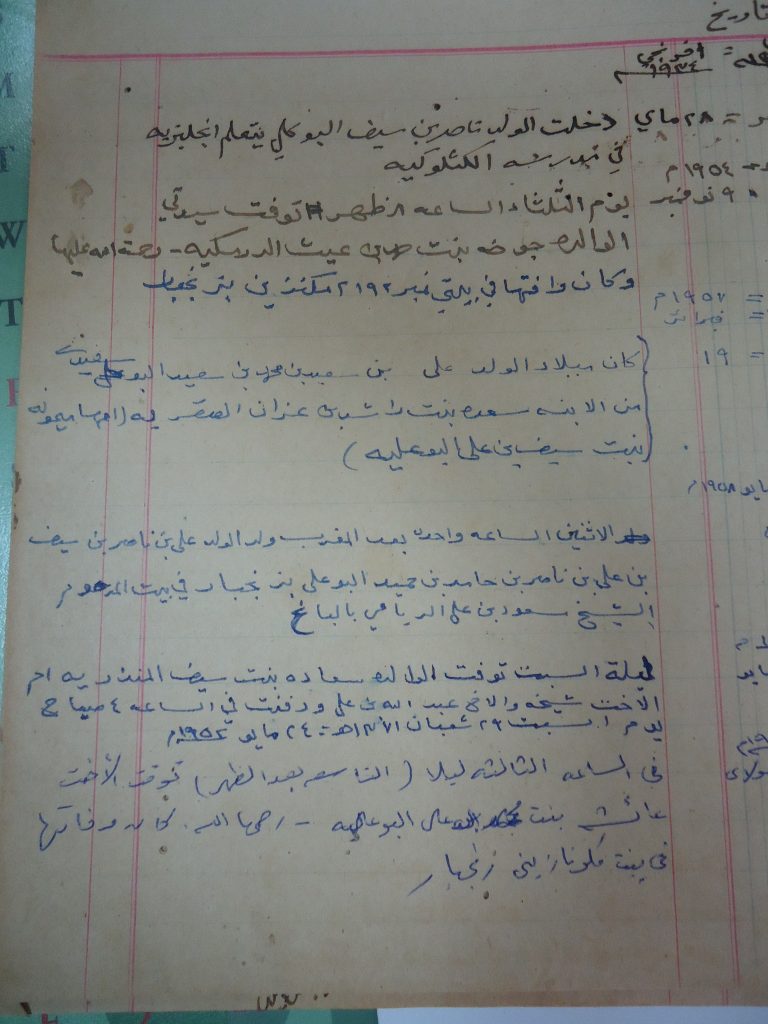 تاريخ
افرنجي
١٩٣٤م
٢٨ ماي دخلت الولد ناصر بن سيف البوعلي يتعلم انجليزيه
في مدرسه الكثلوكيه
١٩٥٤م
٩ نوفمبر يوم الثلثاء الساعه ٨ ظهر توفت سيدتي
الوالده جوخه بنت عيث الدرمكيه - رحمة الله عليها
وكان وافتها في بيتي نمبر ٢١٩٢ بزنجبار
١٩٥٧م
١٩ كان ميلاد الولد علي بن سعيد بن محمد بن سعيد البو
من الابنه سعده بنت راشد بن عزان الصقريه (امها ميمونه
بنت سيف بن علي البوعليه)
مايو ١٩٥٨م
الاثنين الساعه واحده بعد المغرب ولد الولد علي بن ناصر بن سيف
بن علي بن ناصر بن حامد بن حميد البوعلي بزنجبار في بيت المرحوم
الشيخ سعود بن علي الريامي
ليلة السبت توفت الوالده سعاده بنت سيف المنذريه ام
الاخت شيخه والاخ عبد الله بن علي ودفنت في الساعه ٤ صباح
يوم السبت ٢٩ شعبان ١٣٧١هـ = ٢٤ مايو ١٩٥٢م
في الساعه الثالثه ليلا (التاسعه بعد الظهر) توفت الأخت
عائشه بنت علي البوعليه - رحمها الله. كان وفاتها
في بيت زنجبار